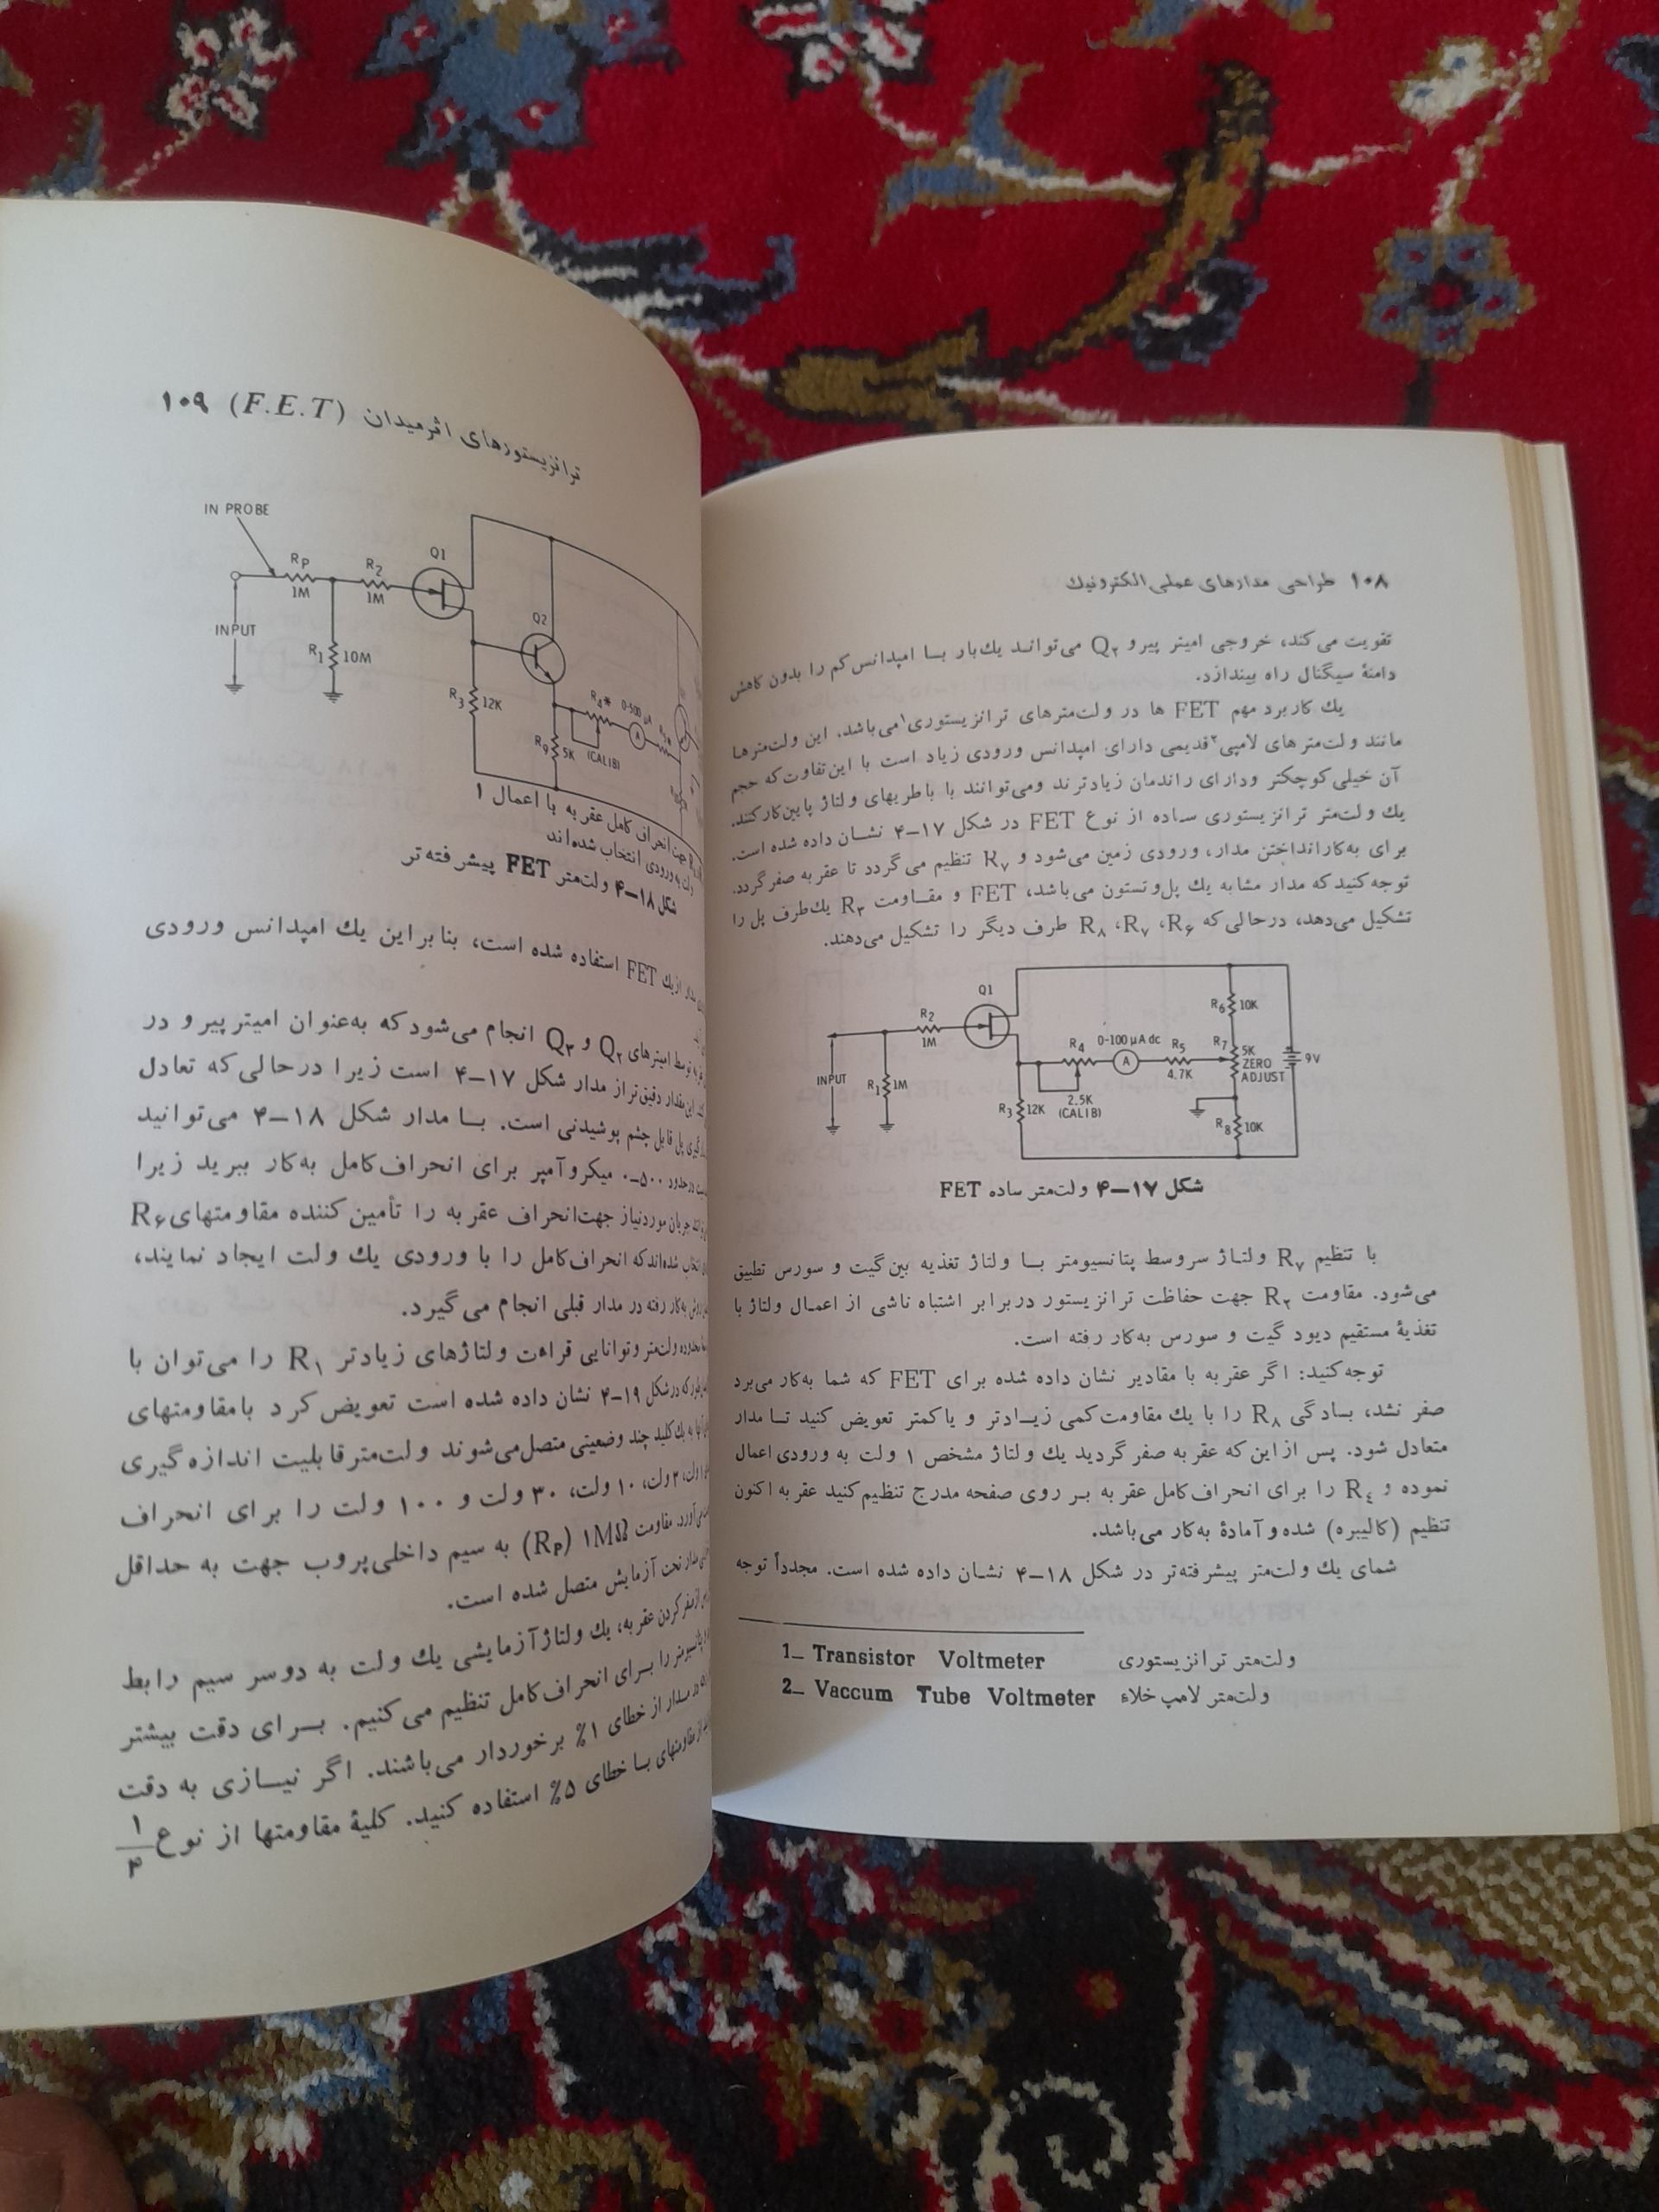 ۱۰۸ طراحی مدارهای عملی الکترونیك
تقویت می‌کند، خروجی امیتر پیرو Q۲ می‌تواند یك‌بار با امپدانس کم را بدون کاهش
دامنهٔ سیگنال راه بیندازد.
یك کاربرد مهم FET ها در ولت‌مترهای ترانزیستوری۱ می‌باشد. این ولت‌مترها
مانند ولت‌مترهای لامپی۲ قدیمی دارای امپدانس ورودی زیاد است با این تفاوت که حجم
آن خیلی کوچکتر ودارای راندمان زیادترند ومی‌توانند با باطریهای ولتاژ پایین کار کنند.
یك ولت‌متر ترانزیستوری ساده از نوع FET در شکل ۱۷–۴ نشان داده شده است.
برای به‌کارانداختن مدار، ورودی زمین می‌شود و R۷ تنظیم می‌گردد تا عقربه صفر گردد.
توجه کنید که مدار مشابه یك پل‌وتستون می‌باشد، FET و مقاومت R۳ یك‌طرف پل را
تشکیل می‌دهد، درحالی‌که R۶، R۷، R۸ طرف دیگر را تشکیل می‌دهند.
Q1
R2
1M
INPUT
R1 1M
R3 12K
R4
2.5K
(CALIB)
0-100 µA dc
A
R5
4.7K
R6 10K
R7 5K
ZERO
ADJUST
9V
R8 10K
شکل ۱۷–۴ ولت‌متر ساده FET
با تنظیم R۷ ولتاژ سروسط پتانسیومتر با ولتاژ تغذیه بین گیت و سورس تطبیق
می‌شود. مقاومت R۲ جهت حفاظت ترانزیستور دربرابر اشتباه ناشی از اعمال ولتاژ با
تغذیهٔ مستقیم دیود گیت و سورس به‌کار رفته است.
توجه‌کنید: اگر عقربه با مقادیر نشان داده شده برای FET که شما به‌کار می‌برد
صفر نشد، بسادگی R۸ را با یك مقاومت کمی زیادتر و یاکمتر تعویض کنید تا مدار
متعادل شود. پس از این که عقربه صفر گردید یك ولتاژ مشخص ۱ ولت به ورودی اعمال
نموده و R٤ را برای انحراف کامل عقربه بر روی صفحه مدرج تنظیم کنید عقربه اکنون
تنظیم (کالیبره) شده و آمادهٔ به‌کار می‌باشد.
شمای یك ولت‌متر پیشرفته‌تر در شکل ۱۸–۴ نشان داده شده است. مجدداً توجه
1_ Transistor Voltmeter ولت‌متر ترانزیستوری
2_ Vaccum Tube Voltmeter ولت‌متر لامپ خلاء
ترانزیستورهای اثرمیدان (F.E.T) ۱۰۹
IN PROBE
RP
1M
R2
1M
Q1
INPUT
R1 10M
Q2
R3 12K
R9 5K
R4*
(CALIB)
0-500 µA
A
جهت انحراف کامل عقربه با اعمال ۱
ولت به ورودی انتخاب شده‌اند
شکل ۱۸–۴ ولت‌متر FET پیشرفته‌تر
ازیك FET استفاده شده است، بنابراین یك امپدانس ورودی
توسط امیترهای Q۲ و Q۳ انجام می‌شود که به‌عنوان امیتر پیرو در
این مقدار دقیق‌تر از مدار شکل ۱۷–۴ است زیرا درحالی که تعادل
پل قابل چشم پوشیدنی است. با مدار شکل ۱۸–۴ می‌توانید
۰–۵۰۰ میکروآمپر برای انحراف کامل به‌کار ببرید زیرا
جریان موردنیاز جهت انحراف عقربه را تأمین کننده مقاومتهای R۶
شده‌اند که انحراف کامل را با ورودی یك ولت ایجاد نمایند،
به‌کار رفته در مدار قبلی انجام می‌گیرد.
محدوده ولت‌متر و توانایی قراءت ولتاژهای زیادتر R۱ را می‌توان با
که درشکل ۱۹–۴ نشان داده شده است تعویض کرد بامقاومتهای
به یك کلید چند وضعیتی متصل می‌شوند ولت‌مترقابلیت اندازه‌گیری
ولت، ۱۰ ولت، ۳۰ ولت و ۱۰۰ ولت را برای انحراف
مقاومت ۱MΩ (RP) به سیم داخلی پروب جهت به حداقل
مدار تحت آزمایش متصل شده است.
ازصفرکردن عقربه، یك ولتاژ آزمایشی یك ولت به دوسر سیم رابط
را برای انحراف کامل تنظیم می‌کنیم. برای دقت بیشتر
مدار از خطای ۱% برخوردار می‌باشند. اگر نیازی به دقت
مقاومتهای با خطای ۵% استفاده کنید. کلیهٔ مقاومتها از نوع ۱/۴